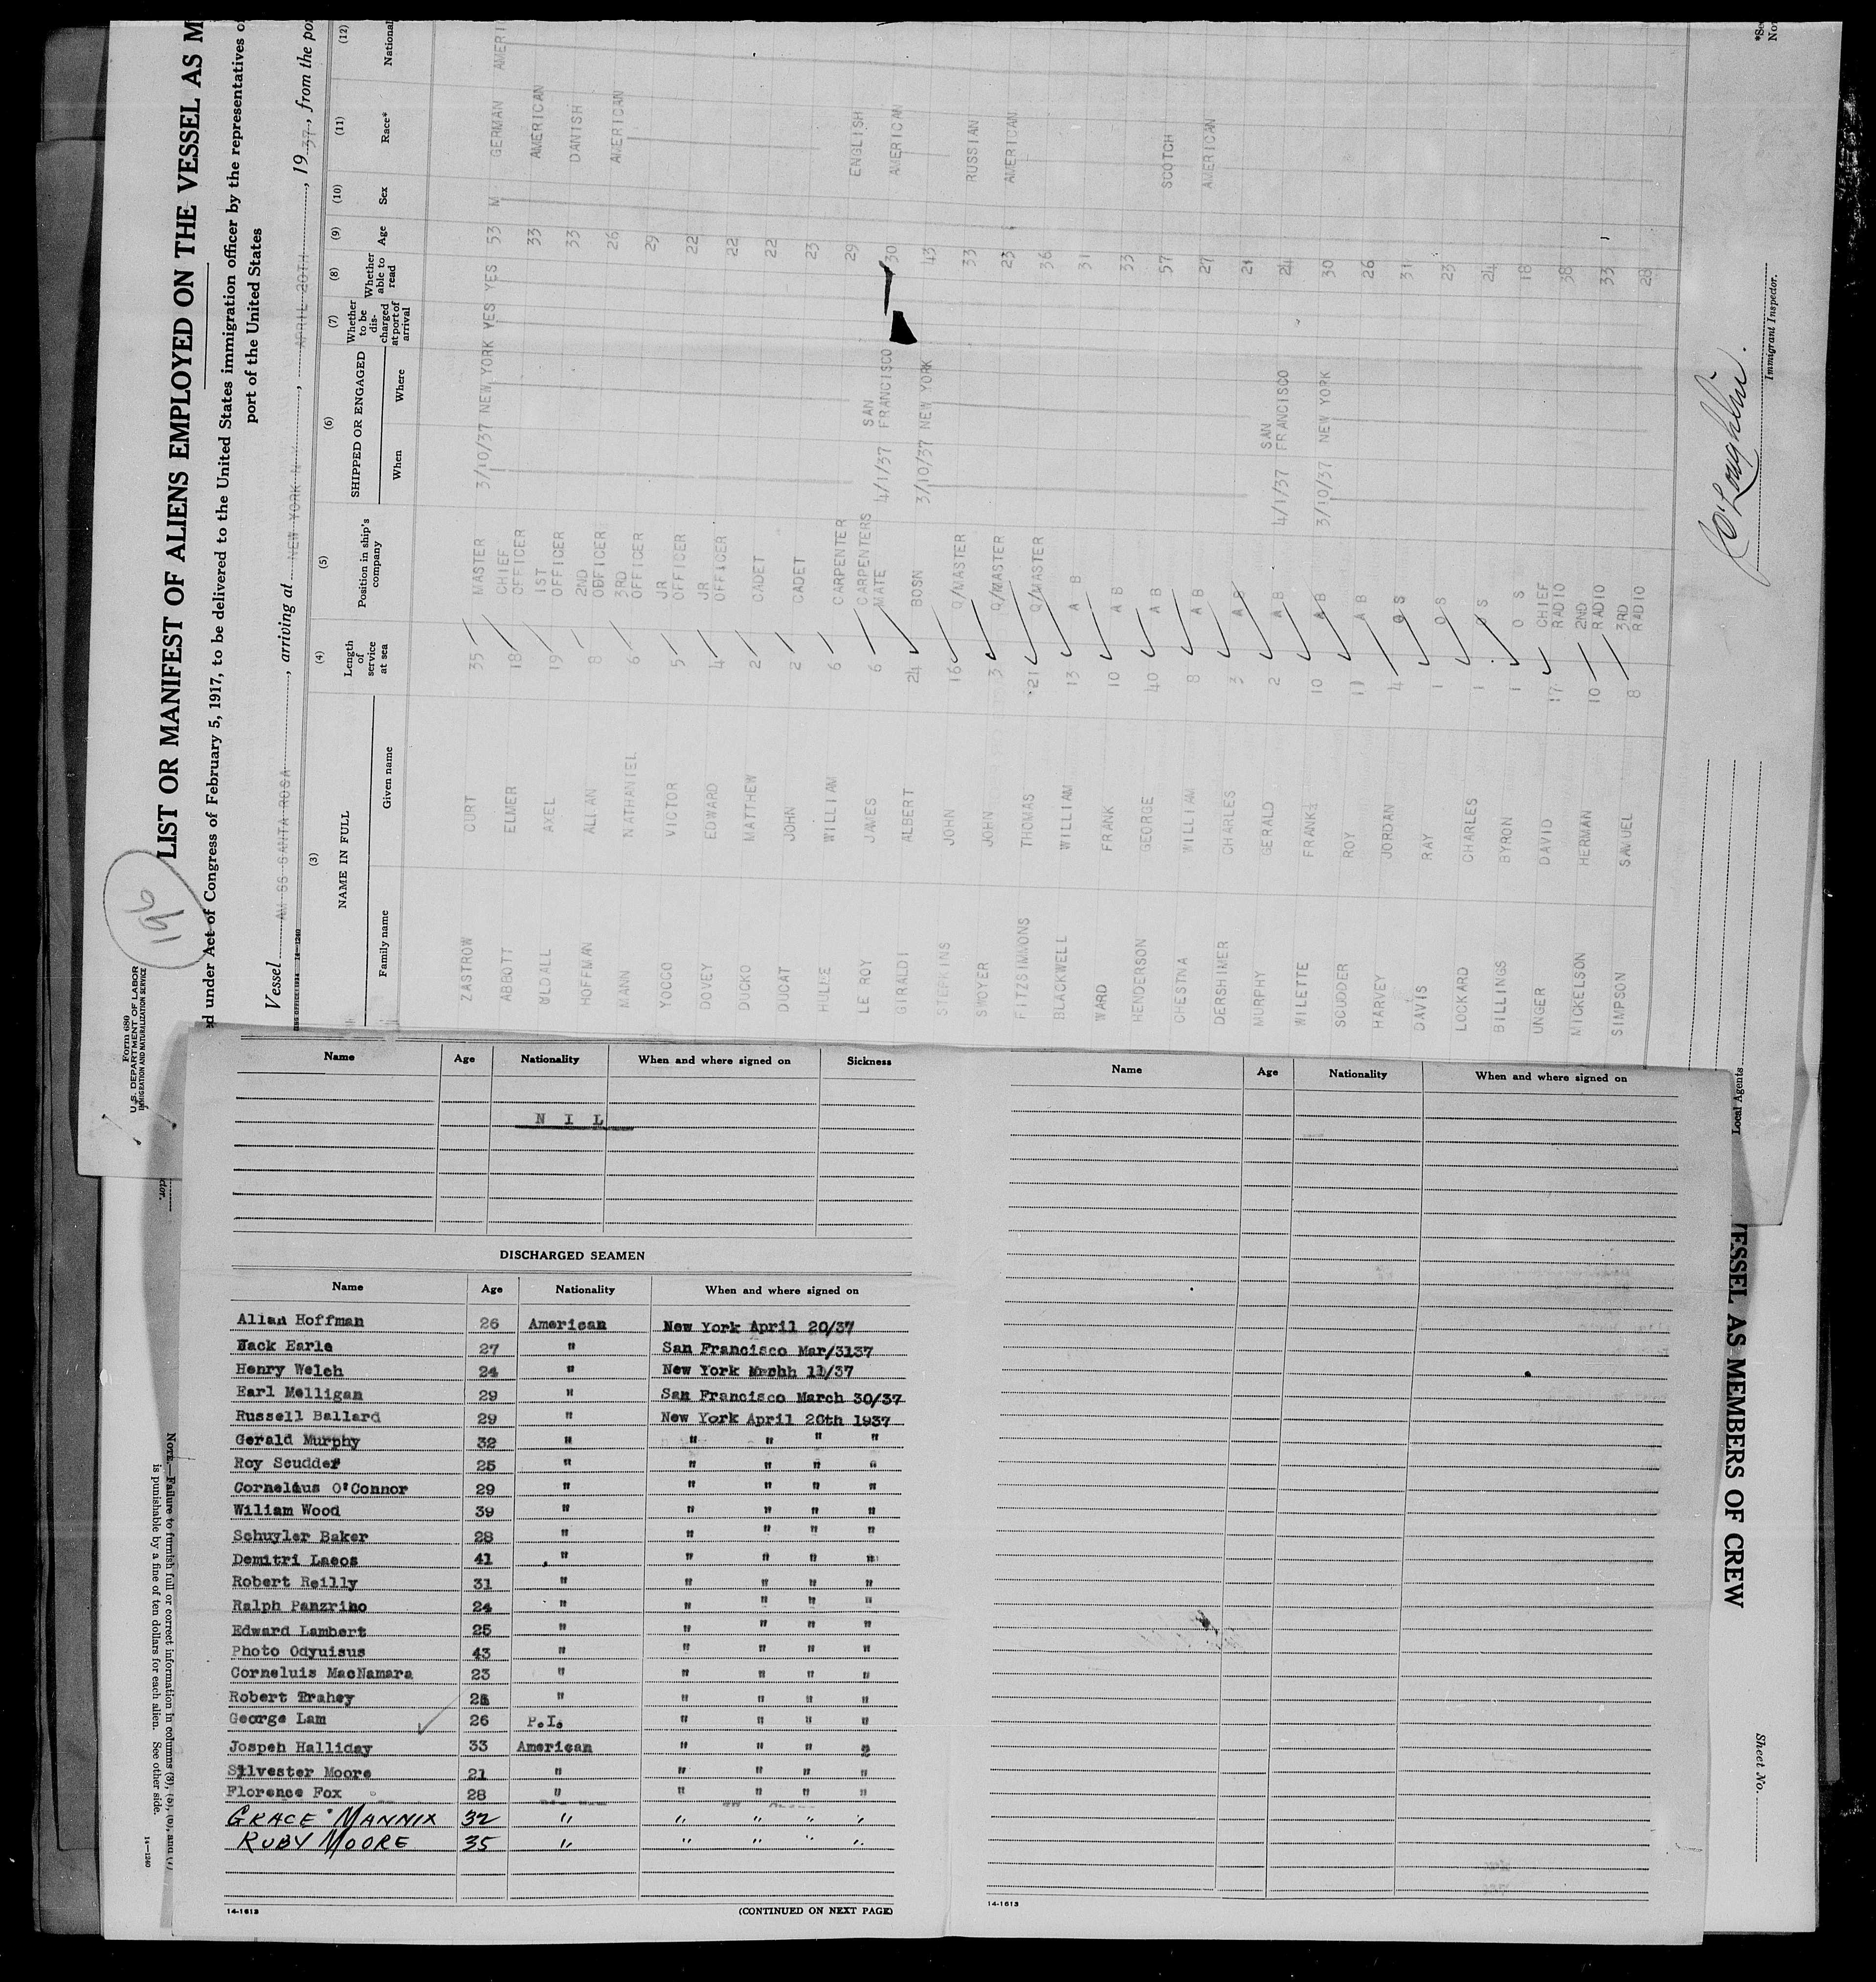 Form 680
U. S. DEPARTMENT OF LABOR
IMMIGRATION AND NATURALIZATION SERVICE
196
LIST OR MANIFEST OF ALIENS EMPLOYED ON THE VESSEL AS M
ed under Act of Congress of February 5, 1917, to be delivered to the United States immigration officer by the representatives o
port of the United States
Vessel AM SS SANTA ROSA, arriving at NEW YORK N.Y., APRIL 20TH, 1937, from the po
14—1240
(3) (4) (5) (6) (7) (8) (9) (10) (11) (12)
NAME IN FULL Length of service at sea Position in ship's company SHIPPED OR ENGAGED Whether to be discharged at port of arrival Whether able to read Age Sex Race* National
Family name Given name When Where
ZASTROW CURT 35 MASTER 3/10/37 NEW YORK YES YES 53 M GERMAN AMERI
ABBOTT ELMER 18 CHIEF OFFICER 33 AMERICAN
WLDALL AXEL 19 1ST OFFICER 33 DANISH
HOFFMAN ALLAN 8 2ND OFFICER 26 AMERICAN
MANN NATHANIEL 6 3RD OFFICER 29
YOCCO VICTOR 5 JR OFFICER 22
DOVEY EDWARD 4 JR OFFICER 22
DUCKO MATTHEW 2 CADET 22
DUCAT JOHN 2 CADET 23
HULSE WILLIAM 6 CARPENTER 29 ENGLISH
LE ROY JAMES 6 CARPENTERS MATE 4/1/37 SAN FRANCISCO 30 AMERICAN
GIRALDI ALBERT 24 BOSN 3/10/37 NEW YORK 43
STEFKINS JOHN 16 Q/MASTER 33 RUSSIAN
SMOYER JOHN 3 Q/MASTER 23 AMERICAN
FITZSIMMONS THOMAS 21 Q/MASTER 36
BLACKWELL WILLIAM 13 A B 31
WARD FRANK 10 A B 33
HENDERSON GEORGE 40 A B 57 SCOTCH
CHESTNA WILLIAM 8 A B 27 AMERICAN
DERSHIMER CHARLES 3 A B 21
MURPHY GERALD 2 A B 4/1/37 SAN FRANCISCO 24
WILETTE FRANK 10 A B 3/10/37 NEW YORK 30
SCUDDER ROY 11 A B 26
HARVEY JORDAN 4 O S 31
DAVIS RAY 1 O S 23
LOCKARD CHARLES 1 O S 24
BILLINGS BYRON 1 O S 18
UNGER DAVID 17 CHIEF RADIO 38
MICKELSON HERMAN 10 2ND RADIO 33
SIMPSON SAMUEL 8 3RD RADIO 28
Immigrant Inspector.
Local Agents
*Se
No
Name Age Nationality When and where signed on Sickness
N I L
DISCHARGED SEAMEN
Name Age Nationality When and where signed on
Allan Hoffman 26 American New York April 20/37
Jack Earle 27 " San Francisco Mar/3137
Henry Welch 24 " New York Mrchh 11/37
Earl Melligan 29 " San Francisco March 30/37
Russell Ballard 29 " New York April 20th 1937
Gerald Murphy 32 " " " " "
Roy Scudder 25 " " " " "
Cornelius O'Connor 29 " " " " "
Wiliam Wood 39 " " " " "
Schuyler Baker 28 " " " " "
Demitri Laeos 41 " " " " "
Robert Reilly 31 " " " " "
Ralph Panzrino 24 " " " " "
Edward Lambert 25 " " " " "
Photo Odyuisus 43 " " " " "
Corneluis MacNamara 23 " " " " "
Robert Trahey " " " " "
George Lam 26 P.I. " " " "
Jospeh Halliday 33 American " " " "
Silvester Moore 21 " " " " "
Florence Fox 28 " " " " "
GRACE MANNIX 32 " " " " "
RUBY MOORE 35 " " " " "
14-1613
(CONTINUED ON NEXT PAGE)
Name Age Nationality When and where signed on
14-1613
VESSEL AS MEMBERS OF CREW
Sheet No.
NOTE.—Failure to furnish full or correct information in columns (3), (5), (6), and (7)
is punishable by a fine of ten dollars for each alien. See other side.
14—1240
ctor.